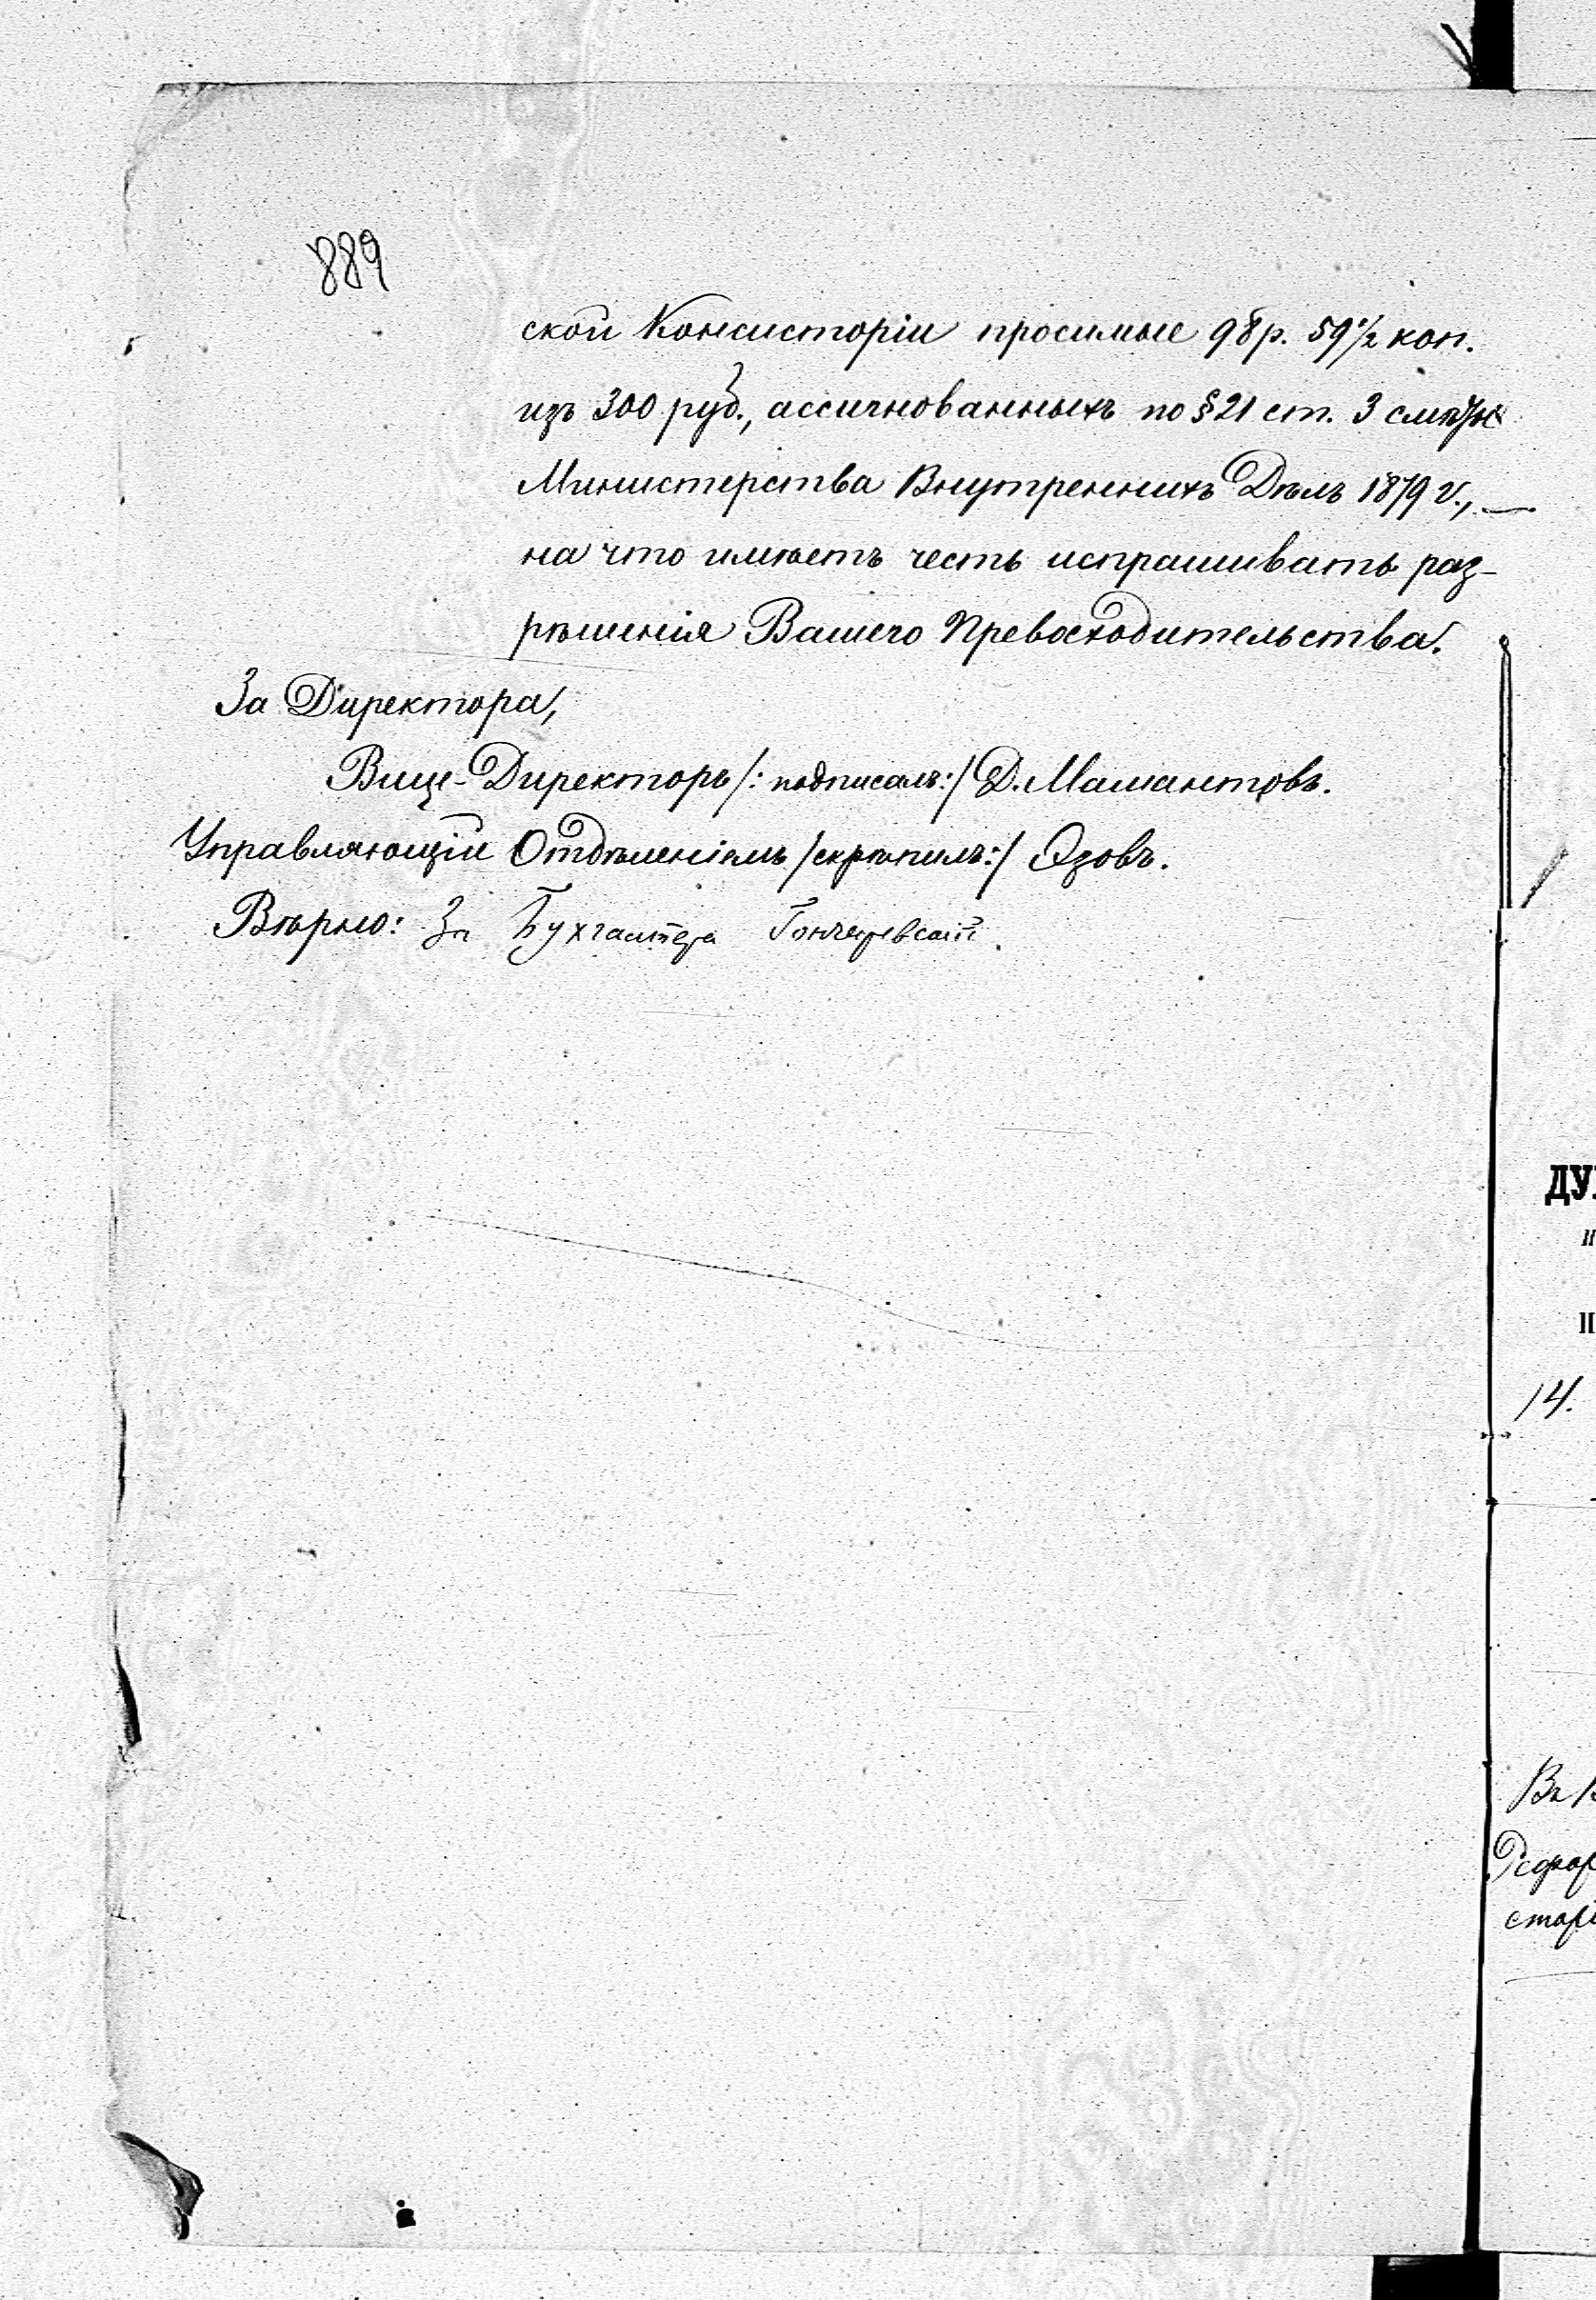 889
ской Консисторіи просимые 98 р. 59½ коп.
изъ 300 руб., ассигнованныхъ по § 21 ст. 3 смѣты
Министерства Внутреннихъ Дѣлъ 1879 г., —
на что имѣетъ честь испрашивать раз-
рѣшенія Вашего Превосходительства.
За Директора,
Вице-Директоръ /: подписалъ:/ Д. Мамантовъ.
Управляющій Отдѣленіемъ /скрѣпилъ:/ Эзовъ.
Вѣрно: За Бухгалтера Гончаревскій.
ДУ
14.
Въ
Рефор